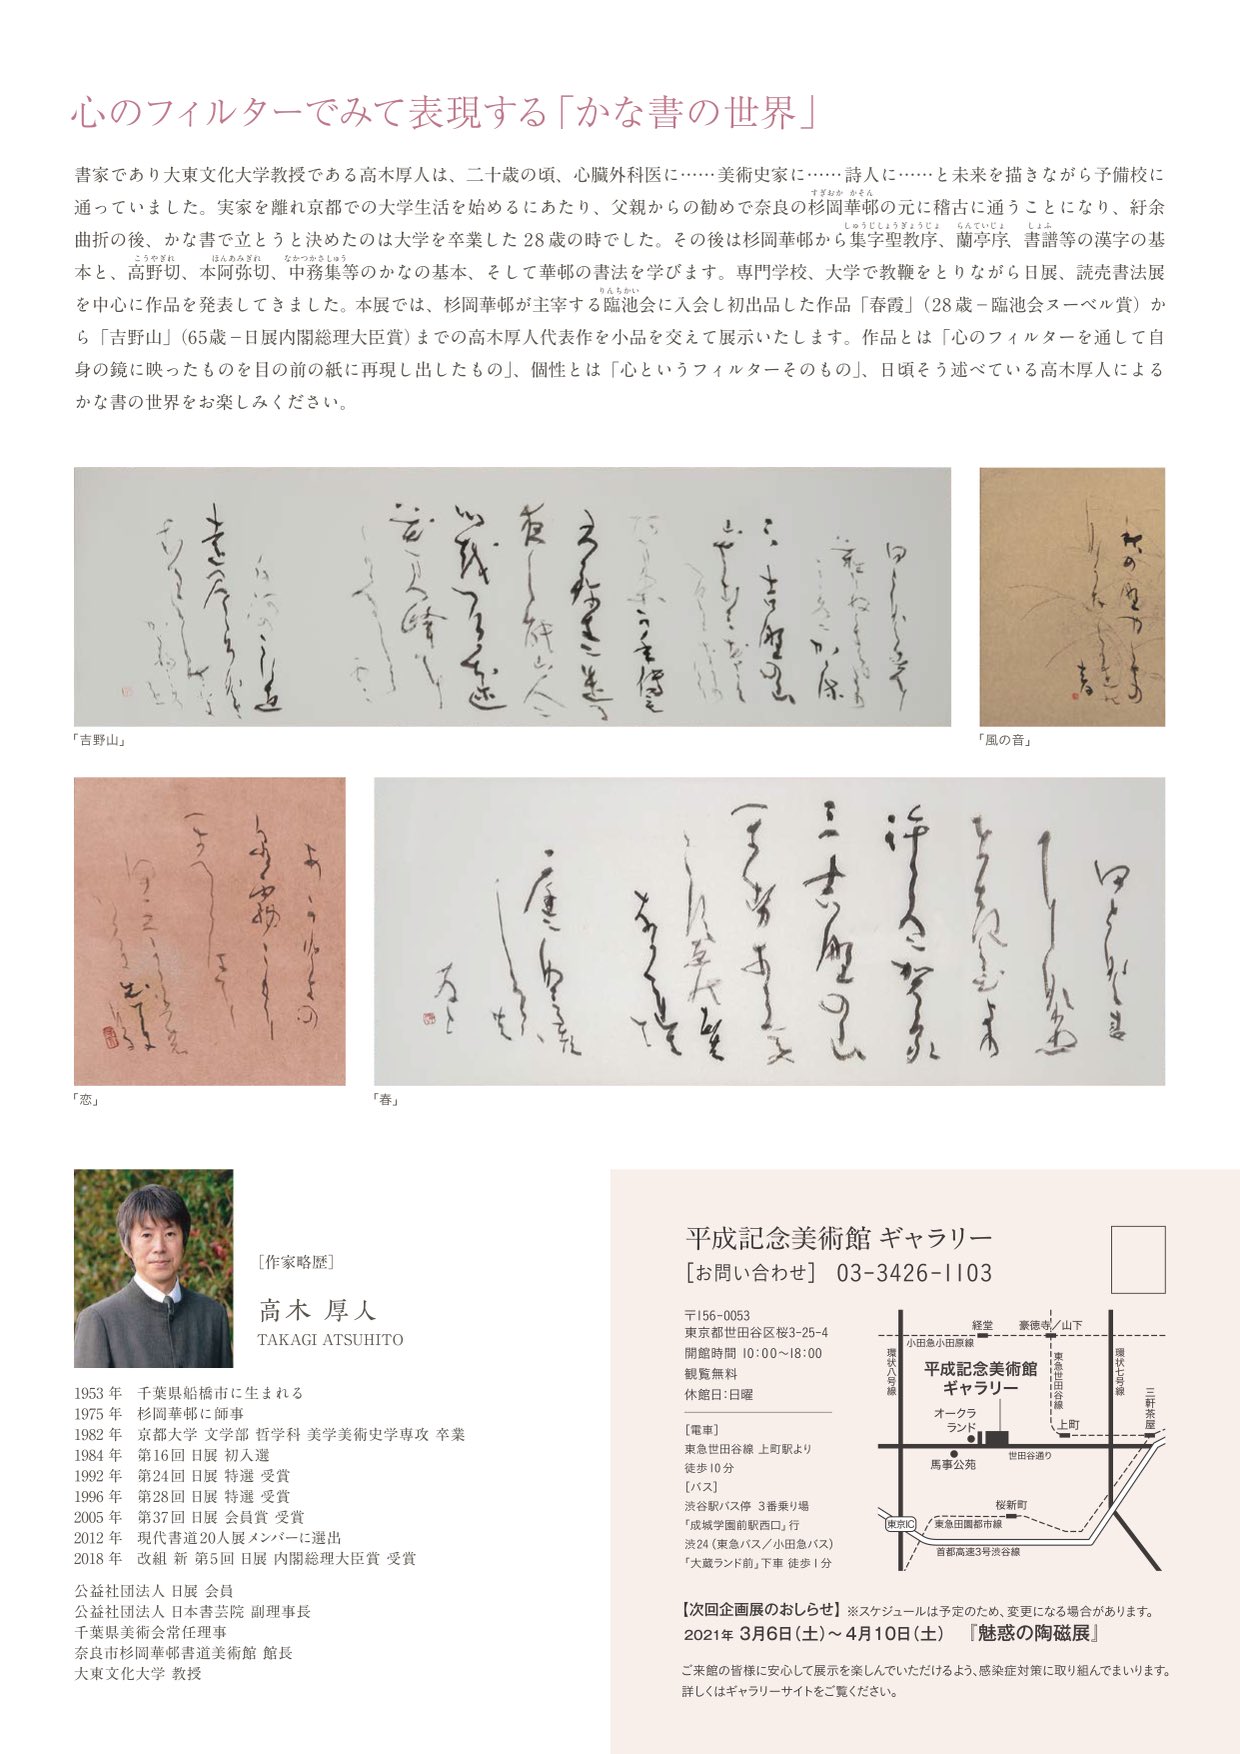 心のフィルターでみて表現する「かな書の世界」
書家であり大東文化大学教授である高木厚人は、二十歳の頃、心臓外科医に……美術史家に……詩人に……と未来を描きながら予備校に
通っていました。実家を離れ京都での大学生活を始めるにあたり、父親からの勧めで奈良の杉岡華邨の元に稽古に通うことになり、紆余
すぎおか かそん
曲折の後、かな書で立とうと決めたのは大学を卒業した 28 歳の時でした。その後は杉岡華邨から集字聖教序、蘭亭序、書譜等の漢字の基
しゅうじしょうぎょうじょ らんていじょ しょふ
本と、高野切、本阿弥切、中務集等のかなの基本、そして華邨の書法を学びます。専門学校、大学で教鞭をとりながら日展、読売書法展
こうやぎれ ほんあみぎれ なかつかさしゅう
を中心に作品を発表してきました。本展では、杉岡華邨が主宰する臨池会に入会し初出品した作品「春霞」（28 歳－臨池会ヌーベル賞）か
りんちかい
ら「吉野山」（65歳－日展内閣総理大臣賞）までの高木厚人代表作を小品を交えて展示いたします。作品とは「心のフィルターを通して自
身の鏡に映ったものを目の前の紙に再現し出したもの」、個性とは「心というフィルターそのもの」、日頃そう述べている高木厚人による
かな書の世界をお楽しみください。
「吉野山」
「風の音」
「恋」
「春」
［作家略歴］
高木 厚人
TAKAGI ATSUHITO
1953 年 千葉県船橋市に生まれる
1975 年 杉岡華邨に師事
1982 年 京都大学 文学部 哲学科 美学美術史学専攻 卒業
1984 年 第16回 日展 初入選
1992 年 第24回 日展 特選 受賞
1996 年 第28回 日展 特選 受賞
2005 年 第37回 日展 会員賞 受賞
2012 年 現代書道20人展メンバーに選出
2018 年 改組 新 第5回 日展 内閣総理大臣賞 受賞
公益社団法人 日展 会員
公益社団法人 日本書芸院 副理事長
千葉県美術会常任理事
奈良市杉岡華邨書道美術館 館長
大東文化大学 教授
平成記念美術館 ギャラリー
［お問い合わせ］ 03-3426-1103
〒156-0053
東京都世田谷区桜3-25-4
開館時間 10:00～18:00
観覧無料
休館日：日曜
［電車］
東急世田谷線 上町駅より
徒歩10分
［バス］
渋谷駅バス停 3番乗り場
「成城学園前駅西口」行
渋24（東急バス／小田急バス）
「大蔵ランド前」下車 徒歩1分
経堂
豪徳寺／山下
小田急小田原線
環状八号線
平成記念美術館
ギャラリー
東急世田谷線
環状七号線
三軒茶屋
オークラ
ランド
上町
馬事公苑
世田谷通り
桜新町
東京IC
東急田園都市線
首都高速3号渋谷線
【次回企画展のおしらせ】※スケジュールは予定のため、変更になる場合があります。
2021年 3月6日（土）～4月10日（土） 『魅惑の陶磁展』
ご来館の皆様に安心して展示を楽しんでいただけるよう、感染症対策に取り組んでまいります。
詳しくはギャラリーサイトをご覧ください。